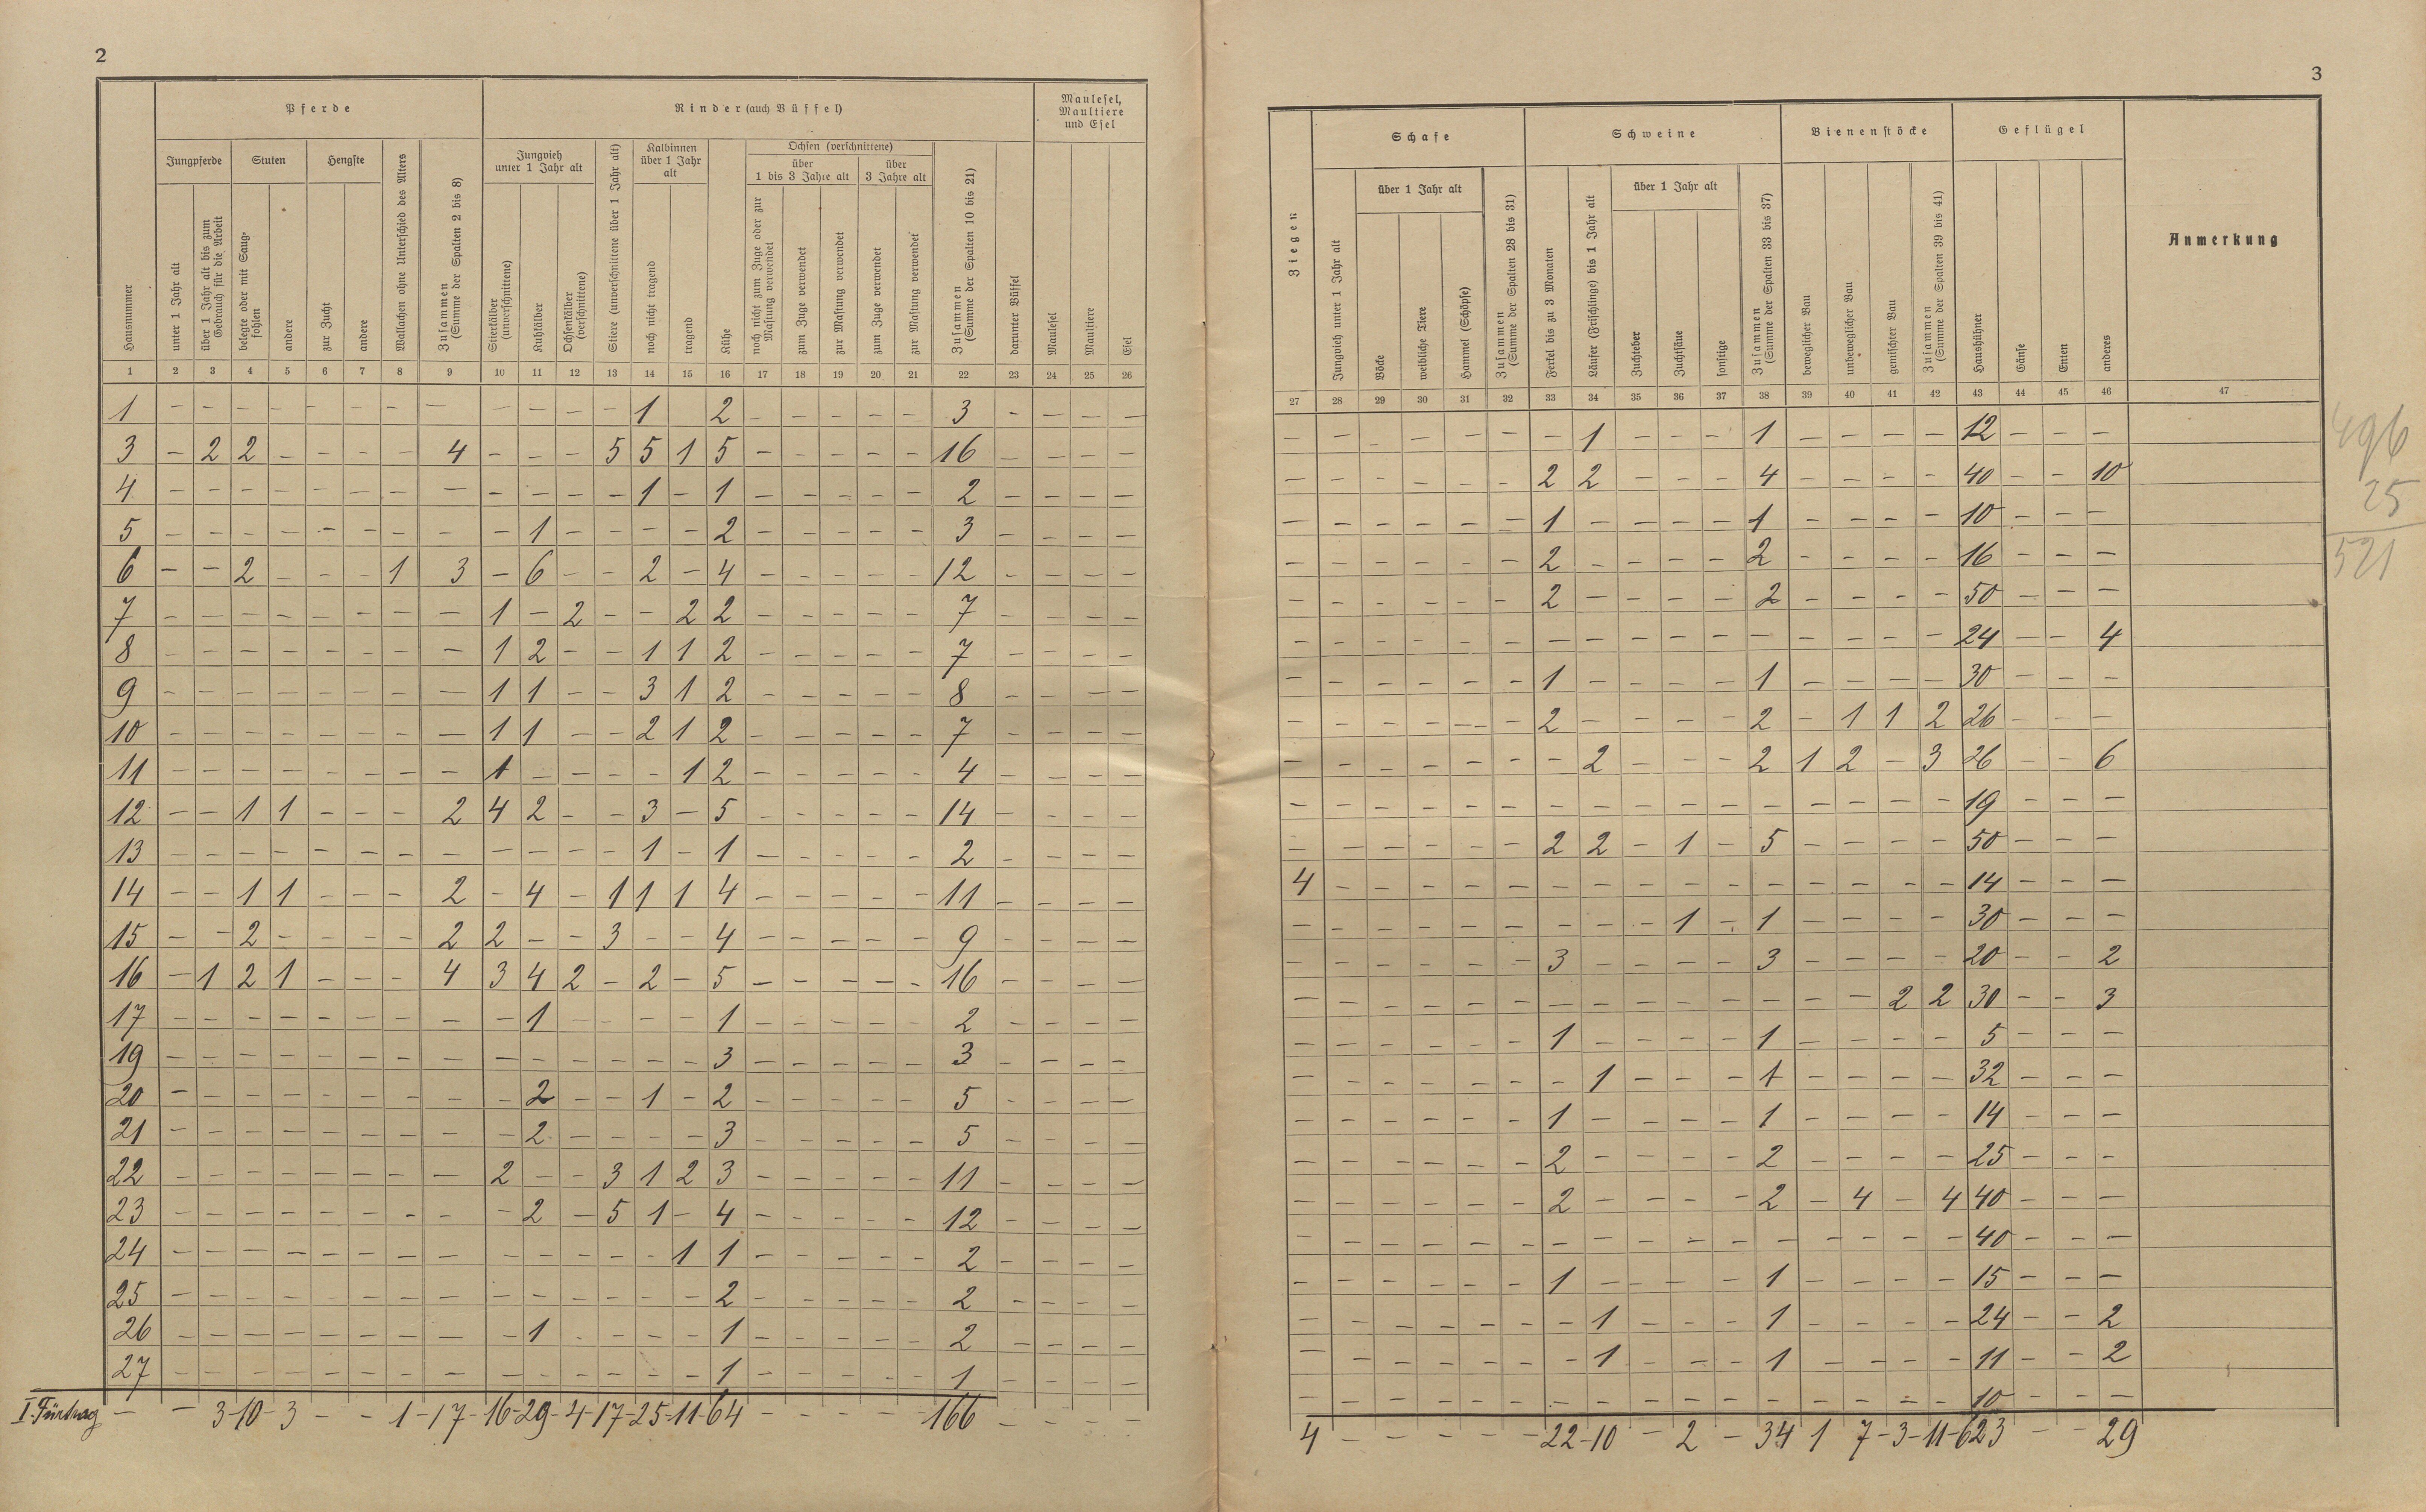 2
Pferde
Rinder (auch Büffel)
Maulesel, Maultiere und Esel
Jungpferde
Stuten
Hengste
Wallachen ohne Unterschied des Alters
Zusammen (Summe der Spalten 2 bis 8)
Jungvieh unter 1 Jahr alt
Stiere (unverschnittene über 1 Jahr alt)
Kalbinnen über 1 Jahr alt
Ochsen (verschnittene)
über 1 bis 3 Jahre alt
über 3 Jahre alt
Zusammen (Summe der Spalten 10 bis 21)
Hausnummer
unter 1 Jahr alt
über 1 Jahr alt bis zum Gebrauch für die Arbeit
belegte oder mit Saug-fohlen
andere
zur Zucht
andere
Stierkälber (unverschnittene)
Kuhkälber
Ochsenkälber (verschnittene)
noch nicht tragend
tragend
Kühe
noch nicht zum Zuge oder zur Mastung verwendet
zum Zuge verwendet
zur Mastung verwendet
zum Zuge verwendet
zur Mastung verwendet
darunter Büffel
Maulesel
Maultiere
Esel
1 2 3 4 5 6 7 8 9 10 11 12 13 14 15 16 17 18 19 20 21 22 23 24 25 26
1 - - - - - - - - - - - - 1 2 - - - - - 3 - - - -
3 - 2 2 - - - - 4 - - - 5 5 1 5 - - - - - 16 - - - -
4 - - - - - - - - - - - - 1 - 1 - - - - - 2 - - - -
5 - - - - - - - - - 1 - - - - 2 - - - - - 3 - - - -
6 - - 2 - - - 1 3 - 6 - - 2 - 4 - - - - - 12 - - - -
7 - - - - - - - - 1 - 2 - - 2 2 - - - - - 7 - - - -
8 - - - - - - - - 1 2 - - 1 1 2 - - - - - 7 - - - -
9 - - - - - - - - 1 1 - - 3 1 2 - - - - - 8 - - - -
10 - - - - - - - - 1 1 - - 2 1 2 - - - - - 7 - - - -
11 - - - - - - - - 1 - - - - 1 2 - - - - - 4 - - - -
12 - - 1 1 - - - 2 4 2 - - 3 - 5 - - - - - 14 - - - -
13 - - - - - - - - - - - - 1 - 1 - - - - - 2 - - - -
14 - - 1 1 - - - 2 - 4 - 1 1 1 4 - - - - - 11 - - - -
15 - - 2 - - - - 2 2 - - 3 - - 4 - - - - - 9 - - - -
16 - 1 2 1 - - - 4 3 4 2 - 2 - 5 - - - - - 16 - - - -
17 - - - - - - - - - 1 - - - - 1 - - - - - 2 - - - -
19 - - - - - - - - - - - - - - 3 - - - - - 3 - - - -
20 - - - - - - - - - 2 - - 1 - 2 - - - - - 5 - - - -
21 - - - - - - - - - 2 - - - - 3 - - - - - 5 - - - -
22 - - - - - - - - 2 - - 3 1 2 3 - - - - - 11 - - - -
23 - - - - - - - - - 2 - 5 1 - 4 - - - - - 12 - - - -
24 - - - - - - - - - - - - - 1 1 - - - - - 2 - - - -
25 - - - - - - - - - - - - - - 2 - - - - - 2 - - - -
26 - - - - - - - - - 1 - - - - 1 - - - - - 2 - - - -
27 - - - - - - - - - - - - - - 1 - - - - - 1 - - - -
I. Fürtrag - - 3 - 10 - 3 - - 1 - 17 - 16 - 29 - 4 - 17 - 25 - 11 - 64 - - - - 166 - - - -
3
Ziegen
Schafe
Schweine
Bienenstöcke
Geflügel
Anmerkung
Jungvieh unter 1 Jahr alt
über 1 Jahr alt
Böcke
weibliche Tiere
Hammel (Schöpse)
Zusammen (Summe der Spalten 28 bis 31)
Ferkel bis zu 3 Monaten
Läufer (Frischlinge) bis 1 Jahr alt
über 1 Jahr alt
Zuchteber
Zuchtsäue
sonstige
Zusammen (Summe der Spalten 33 bis 37)
beweglicher Bau
unbeweglicher Bau
gemischter Bau
Zusammen (Summe der Spalten 39 bis 41)
Haushühner
Gänse
Enten
anderes
27 28 29 30 31 32 33 34 35 36 37 38 39 40 41 42 43 44 45 46 47
- - - - - - - 1 - - - 1 - - - - 12 - - -
- - - - - - 2 2 - - - 4 - - - - 40 - - 10
- - - - - - 1 - - - - 1 - - - - 10 - - -
- - - - - - 2 - - - - 2 - - - - 16 - - -
- - - - - - 2 - - - - 2 - - - - 50 - - -
- - - - - - - - - - - - - - - - 24 - - 4
- - - - - - 1 - - - - 1 - - - - 30 - - -
- - - - - - 2 - - - - 2 - 1 1 2 26 - - -
- - - - - - - 2 - - - 2 1 2 - 3 26 - - 6
- - - - - - - - - - - - - - - - 19 - - -
- - - - - - 2 2 - 1 - 5 - - - - 50 - - -
4 - - - - - - - - - - - - - - - 14 - - -
- - - - - - - - - 1 - 1 - - - - 30 - - -
- - - - - - 3 - - - - 3 - - - - 20 - - 2
- - - - - - - - - - - - - - 2 2 30 - - 3
- - - - - - 1 - - - - 1 - - - - 5 - - -
- - - - - - - 1 - - - 1 - - - - 32 - - -
- - - - - - 1 - - - - 1 - - - - 14 - - -
- - - - - - 2 - - - - 2 - - - - 25 - - -
- - - - - - 2 - - - - 2 - 4 - 4 40 - - -
- - - - - - - - - - - - - - - - 40 - - -
- - - - - - 1 - - - - 1 - - - - 15 - - -
- - - - - - - 1 - - - 1 - - - - 24 - - 2
- - - - - - - 1 - - - 1 - - - - 11 - - 2
- - - - - - - - - - - - - - - - 10 - - -
4 - - - - - 22 - 10 - 2 - 34 1 7 - 3 - 11 - 623 - - 29
496
25
521